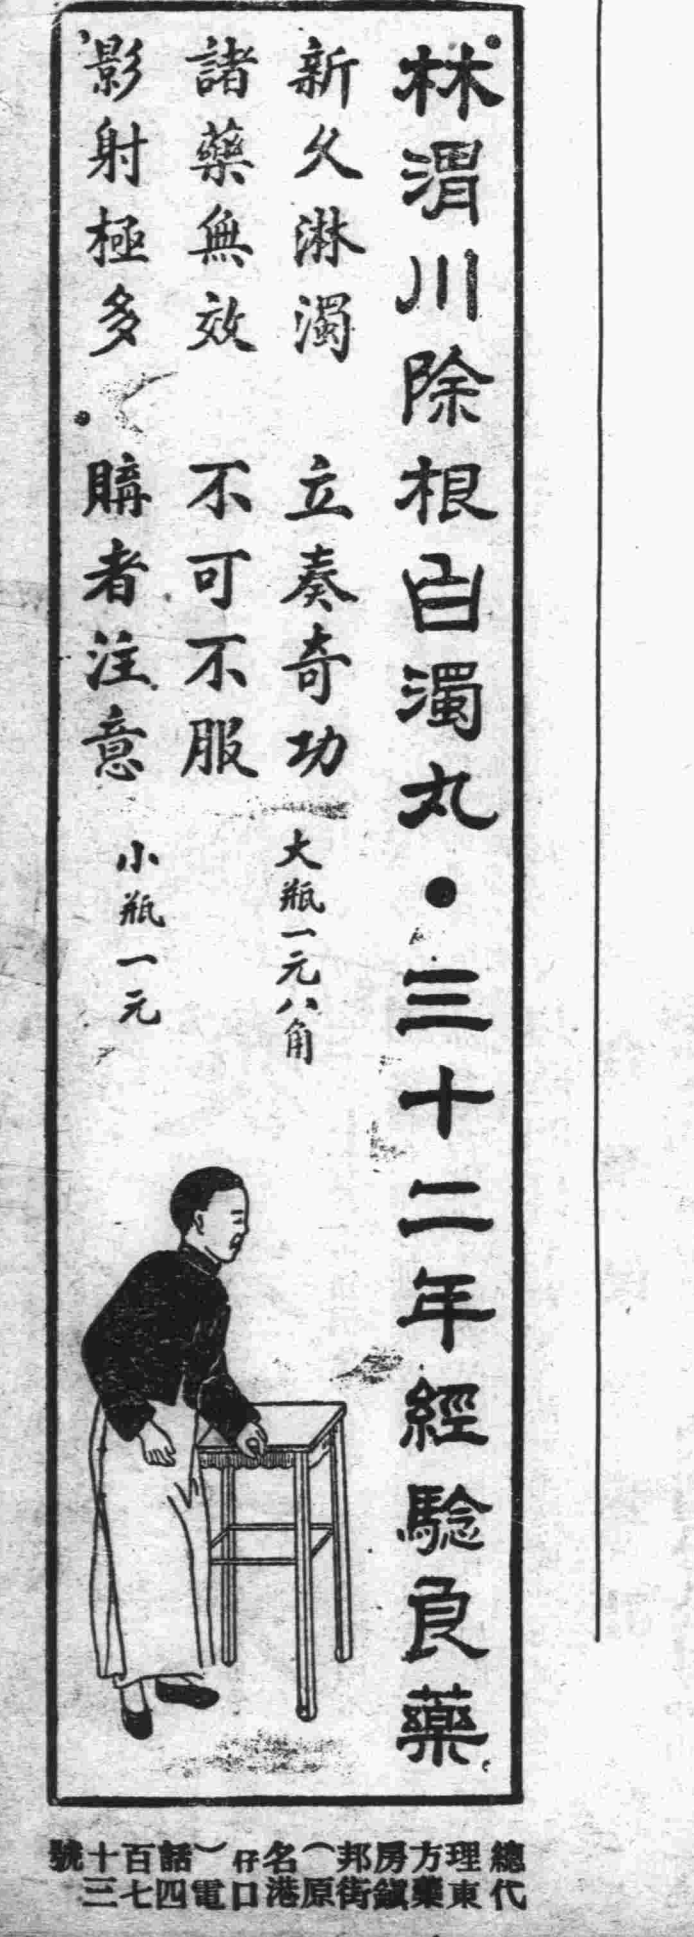 林渭川除根白濁丸●三十二年經騐良藥
新久淋濁 立奏奇功
諸藥無效 不可不服
影射極多 購者注意
大瓶一元八角
小瓶一元
總代理東方藥房鎮邦街（原名港仔口）電話四百七十三號